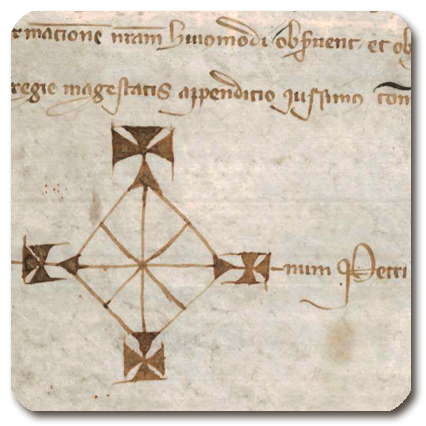 rmacione nram huiomodi obseruent et ob
regie magestatis appenditio iussimus com
num Petri